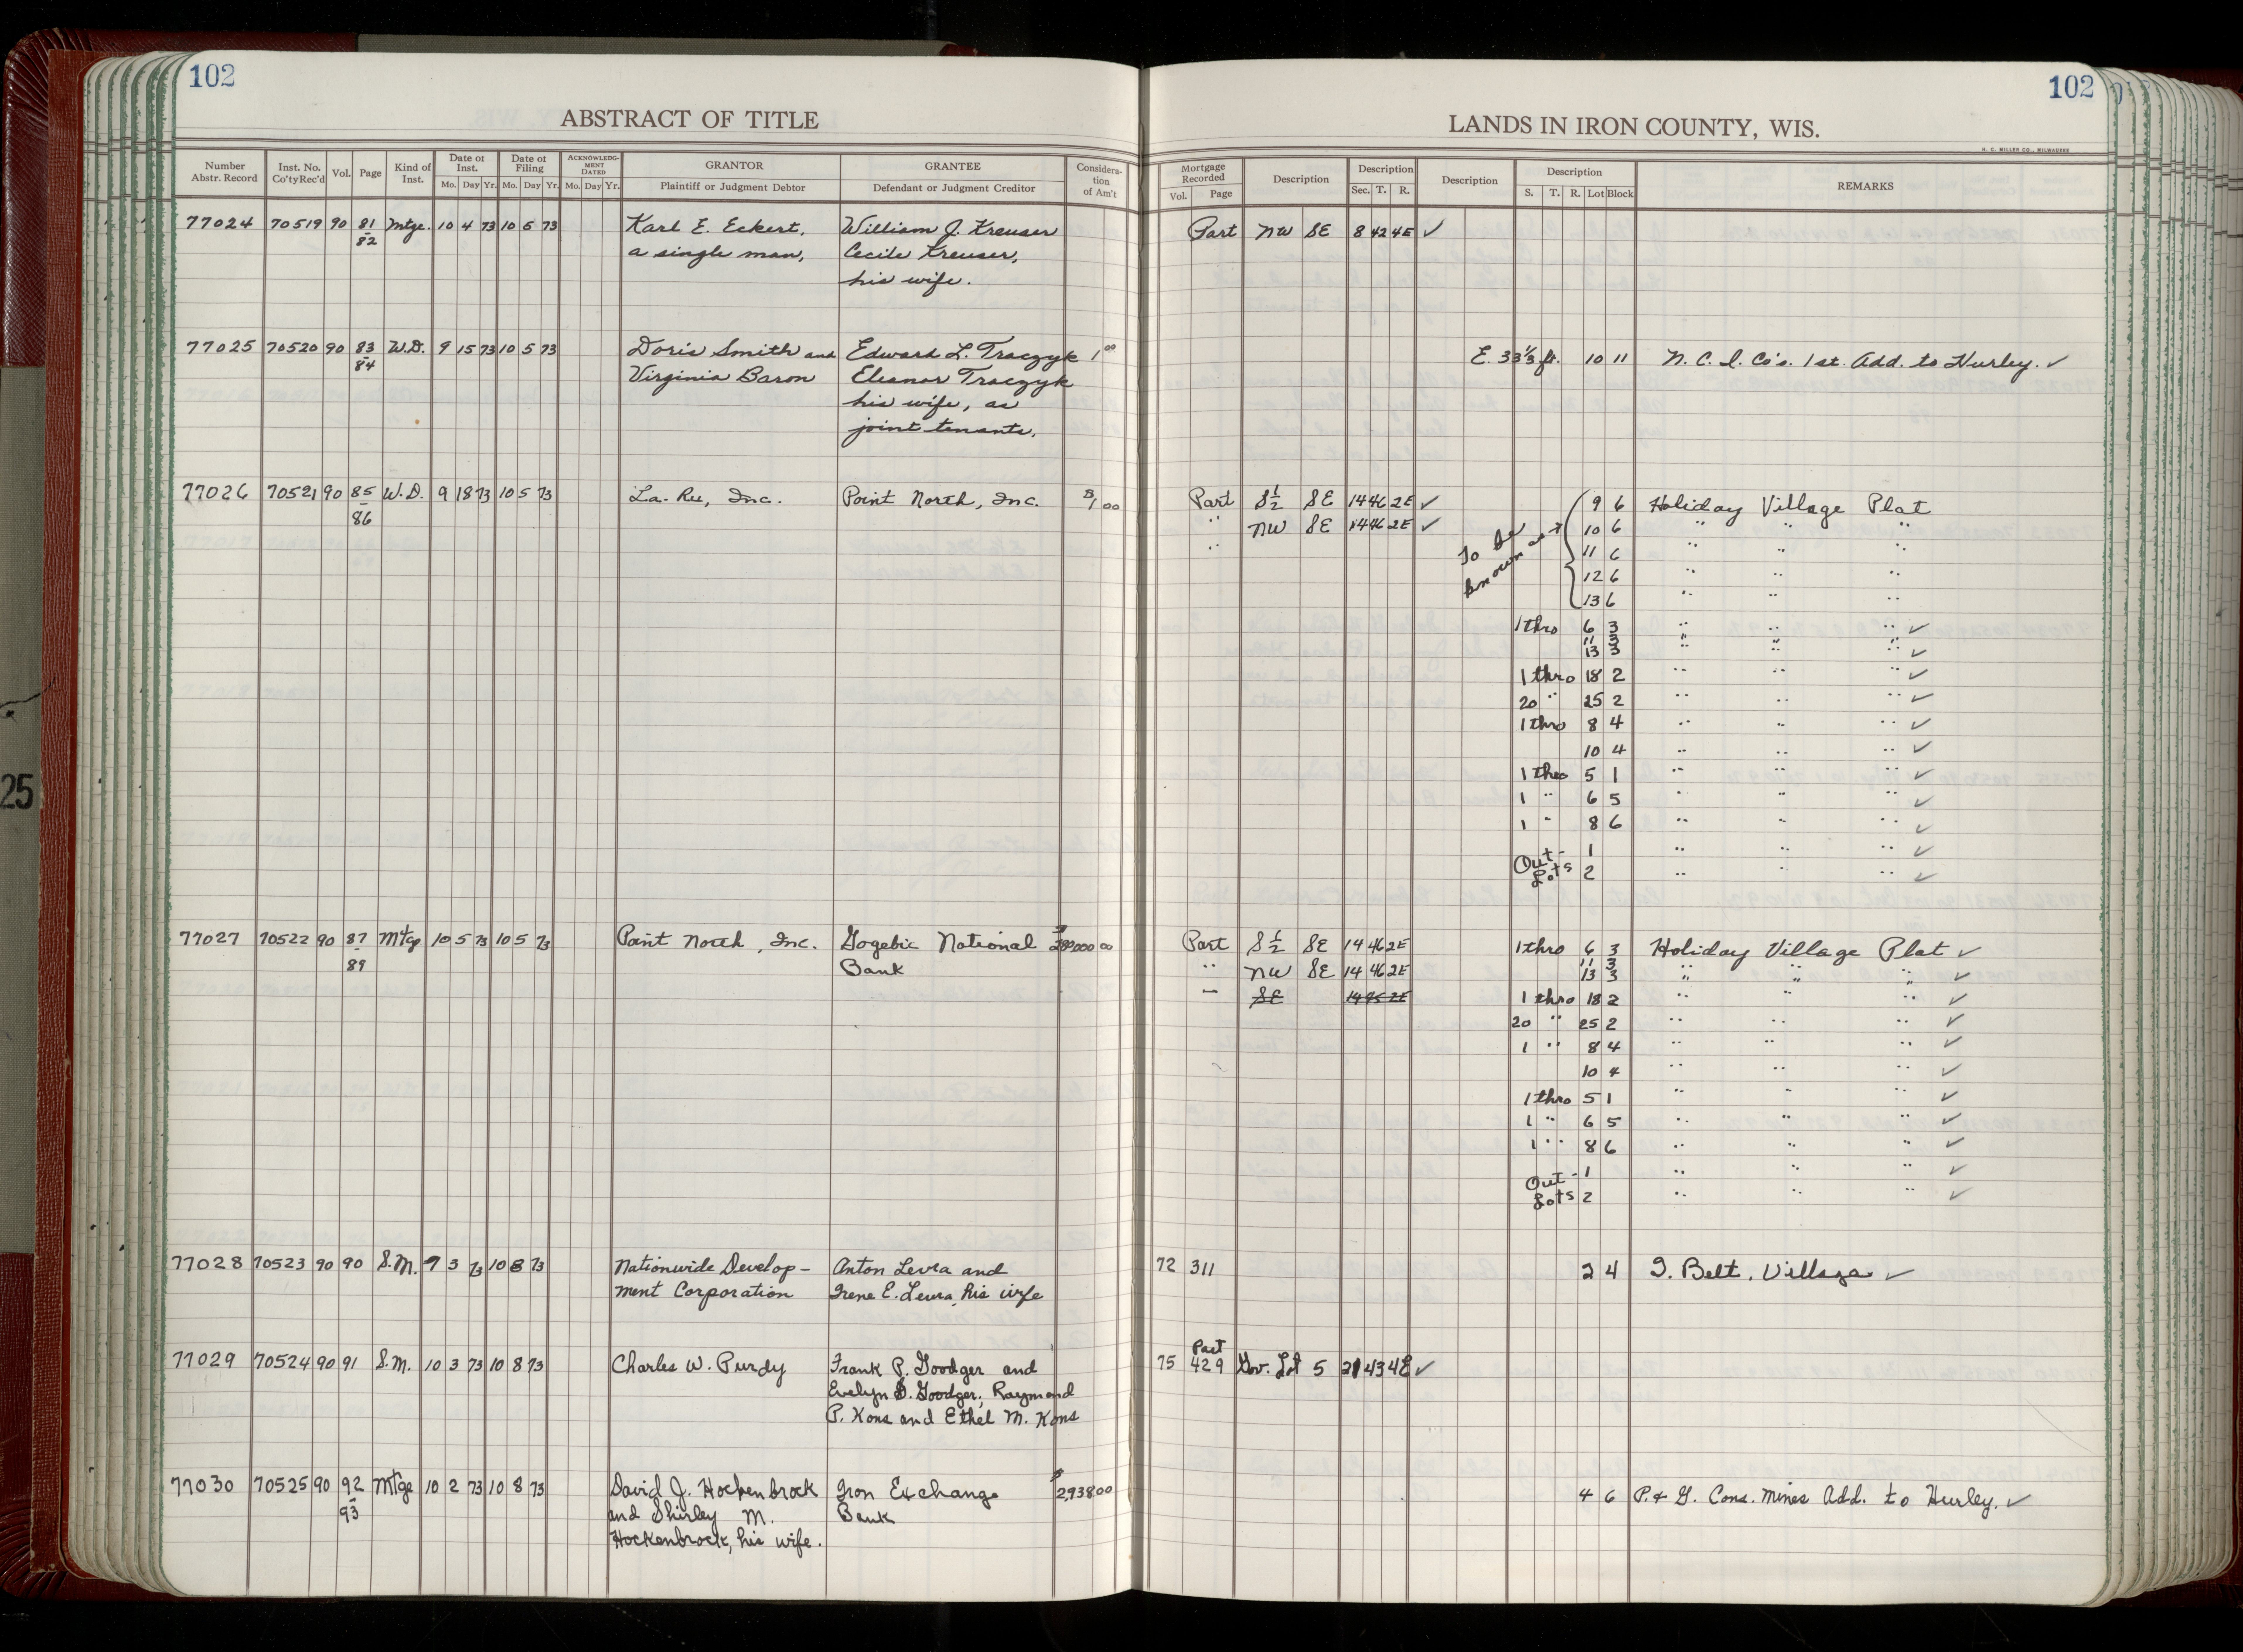 102
ABSTRACT OF TITLE
Number Abstr. Record | Inst. No. Co'ty Rec'd | Vol. | Page | Kind of Inst. | Date of Inst. Mo. Day Yr. | Date of Filing Mo. Day Yr. | ACKNOWLEDGMENT DATED Mo. Day Yr. | GRANTOR Plaintiff or Judgment Debtor | GRANTEE Defendant or Judgment Creditor | Consideration of Am't
77024 70519 90 81 Mtge. 10 4 73 10 5 73 Karl E. Eckert, William J. Kreuser
82 a single man, Cecile Kreuser,
his wife.
77025 70520 90 83 W.D. 9 15 73 10 5 73 Doris Smith and Edward L. Traczyk 1 00
84 Virginia Baron Eleanor Traczyk
his wife, as
joint tenants.
77026 70521 90 85 W.D. 9 18 73 10 5 73 La-Ru, Inc. Point North, Inc. $1 00
86
77027 70522 90 87 Mtge 10 5 73 10 5 73 Point North, Inc. Gogebic National
89 Bank
77028 70523 90 90 S.M. 9 3 73 10 8 73 Nationwide Develop- Anton Levra and
ment Corporation Irene E. Levra, his wife
77029 70524 90 91 S.M. 10 3 73 10 8 73 Charles W. Purdy Frank P. Goodger and
Evelyn Goodger, Raymond
P. Kons and Ethel M. Kons
77030 70525 90 92 Mtge 10 2 73 10 8 73 David J. Hockenbrock Iron Exchange $2,938 00
93 and Shirley M. Bank
Hockenbrock, his wife.
102
LANDS IN IRON COUNTY, WIS.
H. C. MILLER CO., MILWAUKEE
Mortgage Recorded Vol. Page | Description | Description Sec. T. R. | Description | Description S. T. R. Lot Block | REMARKS
Part NW SE 8 42 4E ✓
E. 33 1/3 ft. 10 11 N. C. I. Co's. 1st. Add. to Hurley. ✓
Part S 1/2 SE 14 46 2E ✓ 9 6 Holiday Village Plat
" NW SE 14 46 2E ✓ To be known as → 10 6 " " "
" 11 6 " " "
12 6 " " "
13 6 " " "
1 thro 6 3 " " " ✓
11 3 " " "
13 3 " " " ✓
1 thro 18 2 " " " ✓
20 " 25 2 " " " ✓
1 thro 8 4 " " " ✓
10 4 " " " ✓
1 thro 5 1 " " " ✓
1 " 6 5 " " " ✓
1 " 8 6 " " " ✓
Out- 1 " " " ✓
Lots 2 " " " ✓
Part S 1/2 SE 14 46 2E 1 thro 6 3 Holiday Village Plat ✓
11 3
" NW SE 14 46 2E 13 3 " " " ✓
— SE 14 2E 1 thro 18 2 " " " ✓
20 " 25 2 " " " ✓
1 " 8 4 " " " ✓
10 4 " " " ✓
1 thro 5 1 " " " ✓
1 " 6 5 " " " ✓
1 " 8 6 " " " ✓
Out- 1 " " " ✓
Lots 2 " " " ✓
72 311 2 4 I. Belt. Village ✓
Part
75 429 Gov. Lot 5 21 43 4E ✓
4 6 P. & G. Cons. Mines Add. to Hurley. ✓
25